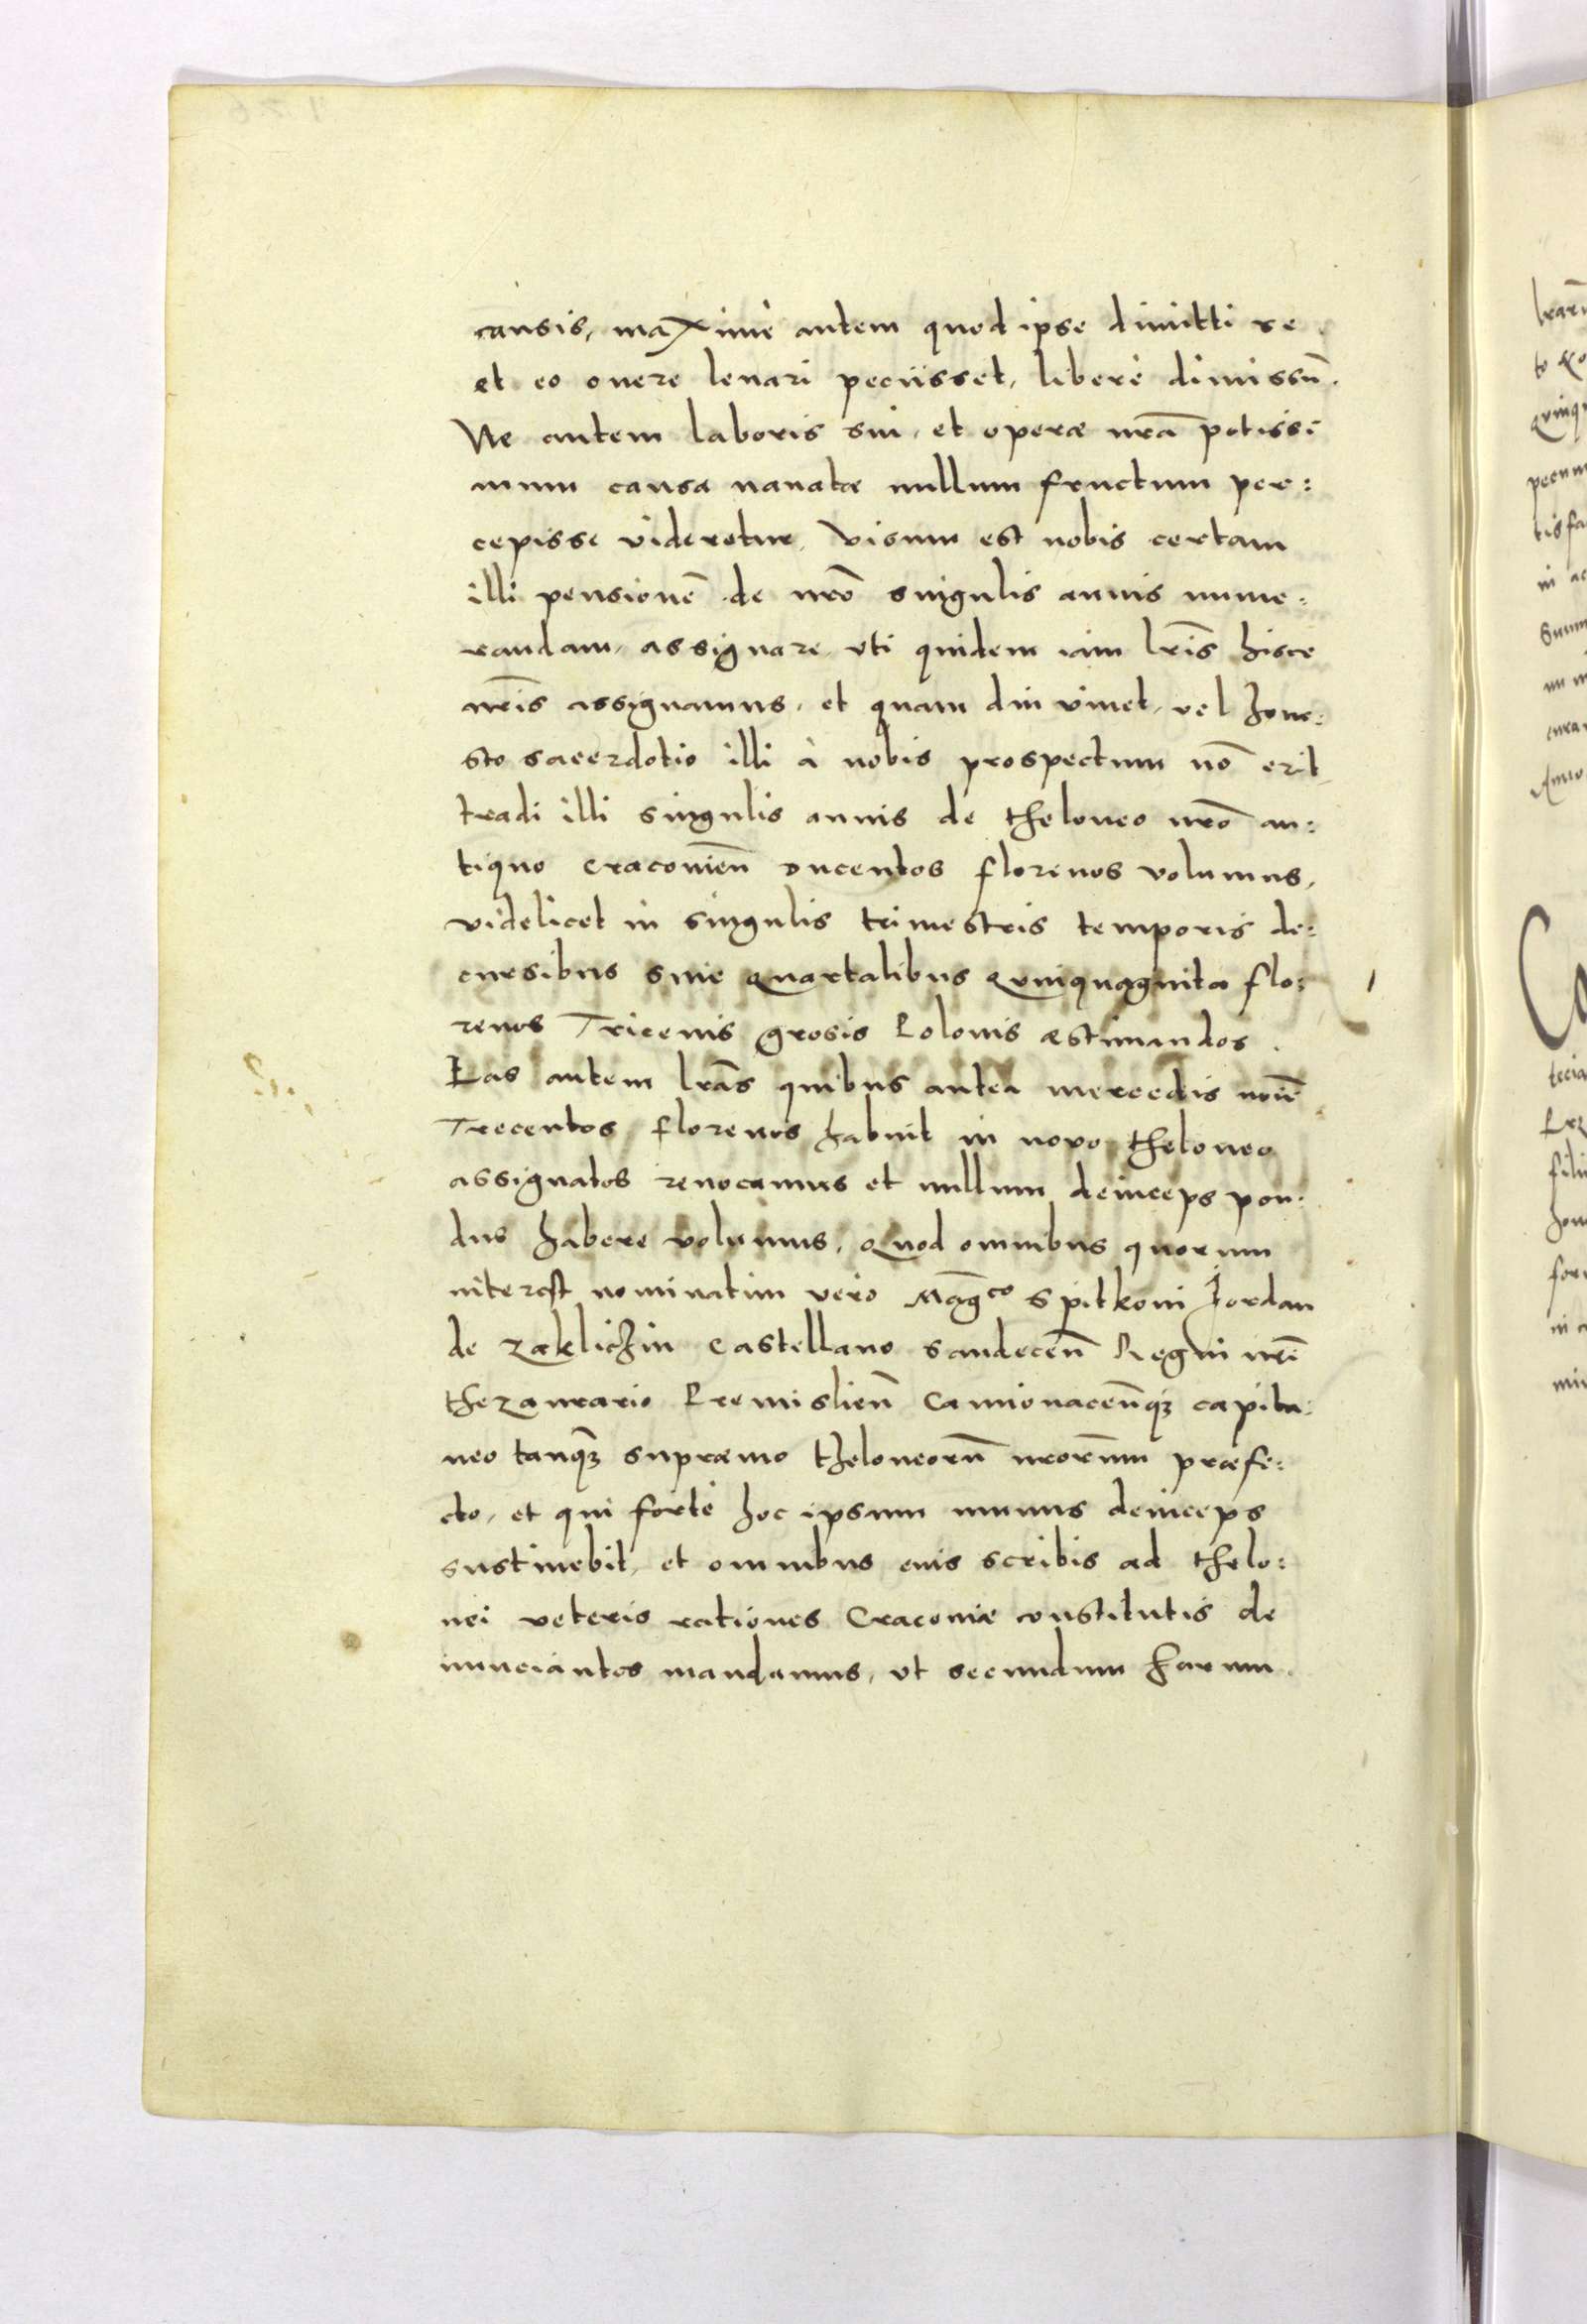 causis, maximè autem quod ipse dimitti se
et eo onere leuari peciisset, liberè dimissū.
Ne autem laboris sui, et operæ nr̃a potissi
mum causa nauatæ nullum fructum per:
cepisse videretur, visum est nobis certam
illi pensionē de nrō singulis annis nume:
randam, assignare, vti quidem iam lr̃is hisce
nr̃is assignamus, et quam diu viuet, vel hone:
sto sacerdotio illi à nobis prospectum nō erit
tradi illi singulis annis de theloneo nrō an:
tiquo Cracouieñ ducentos florenos volumus,
videlicet in singulis trimestris temporis de:
cursibus siue quartalibus quinquaginta flo:
renos Tricenis grosis Polonis æstimandos.
Eas autem lr̃as quibus antea mercedis noīe
Trecentos florenos habuit in novo theloneo
assignatos reuocamus et nullum deinceps pon:
dus habere volumus, quod omnibus quorum
interest nominatim vero Mag̃co Spitkoni Jordan
de Zakliczin Castellano Sandeceñ Regni nr̃i
thezaurario Premislieñ Camionaceñq3 capita:
neo tanq̃3 supræmo theloneorū nrorum præfe:
cto, et qui fortè hoc ipsum munus deinceps
sustinebit, et omnibus eius scribis ad thelo:
nei veteris rationes Cracouiæ constitutis de
nunciantes mandamus, vt secundum harum